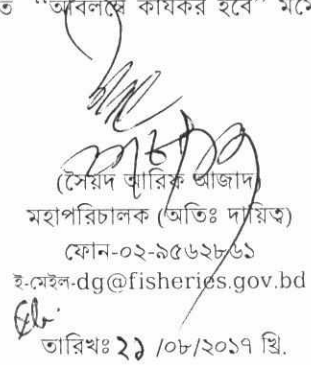 "অবিলম্বে কার্যকর হবে"
(সৈয়দ আরিফ আজাদ)
মহাপরিচালক (অতিঃ দায়িত্ব)
ফোন-০২-৯৫৬২৮৬১
ই-মেইল-dg@fisheries.gov.bd
তারিখঃ ২১ /০৮/২০১৭ খ্রি.